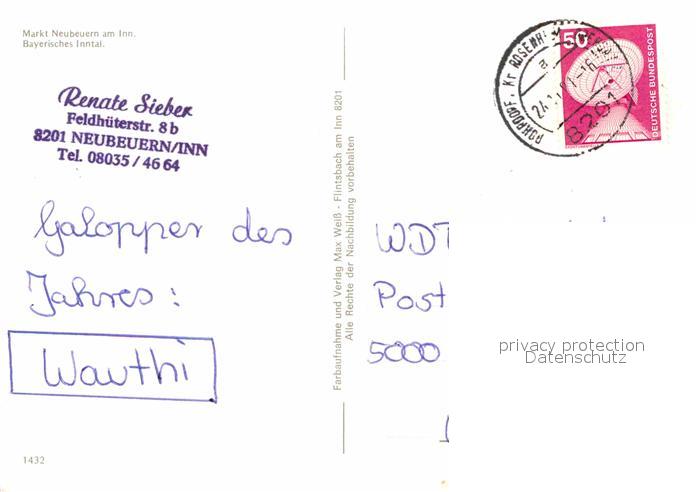 Markt Neubeuern am Inn.
Bayerisches Inntal.
Renate Sieber
Feldhüterstr. 8 b
8201 NEUBEUERN/INN
Tel. 08035 / 46 64
Galopper des
Jahres:
Wauthi
1432
Farbaufnahme und Verlag Max Weiß - Flintsbach am Inn 8201
Alle Rechte der Nachbildung vorbehalten
50
DEUTSCHE BUNDESPOST
ROHRDORF, Kr ROSENHEIM
a
8201
WDT
Post
5000
privacy protection
Datenschutz